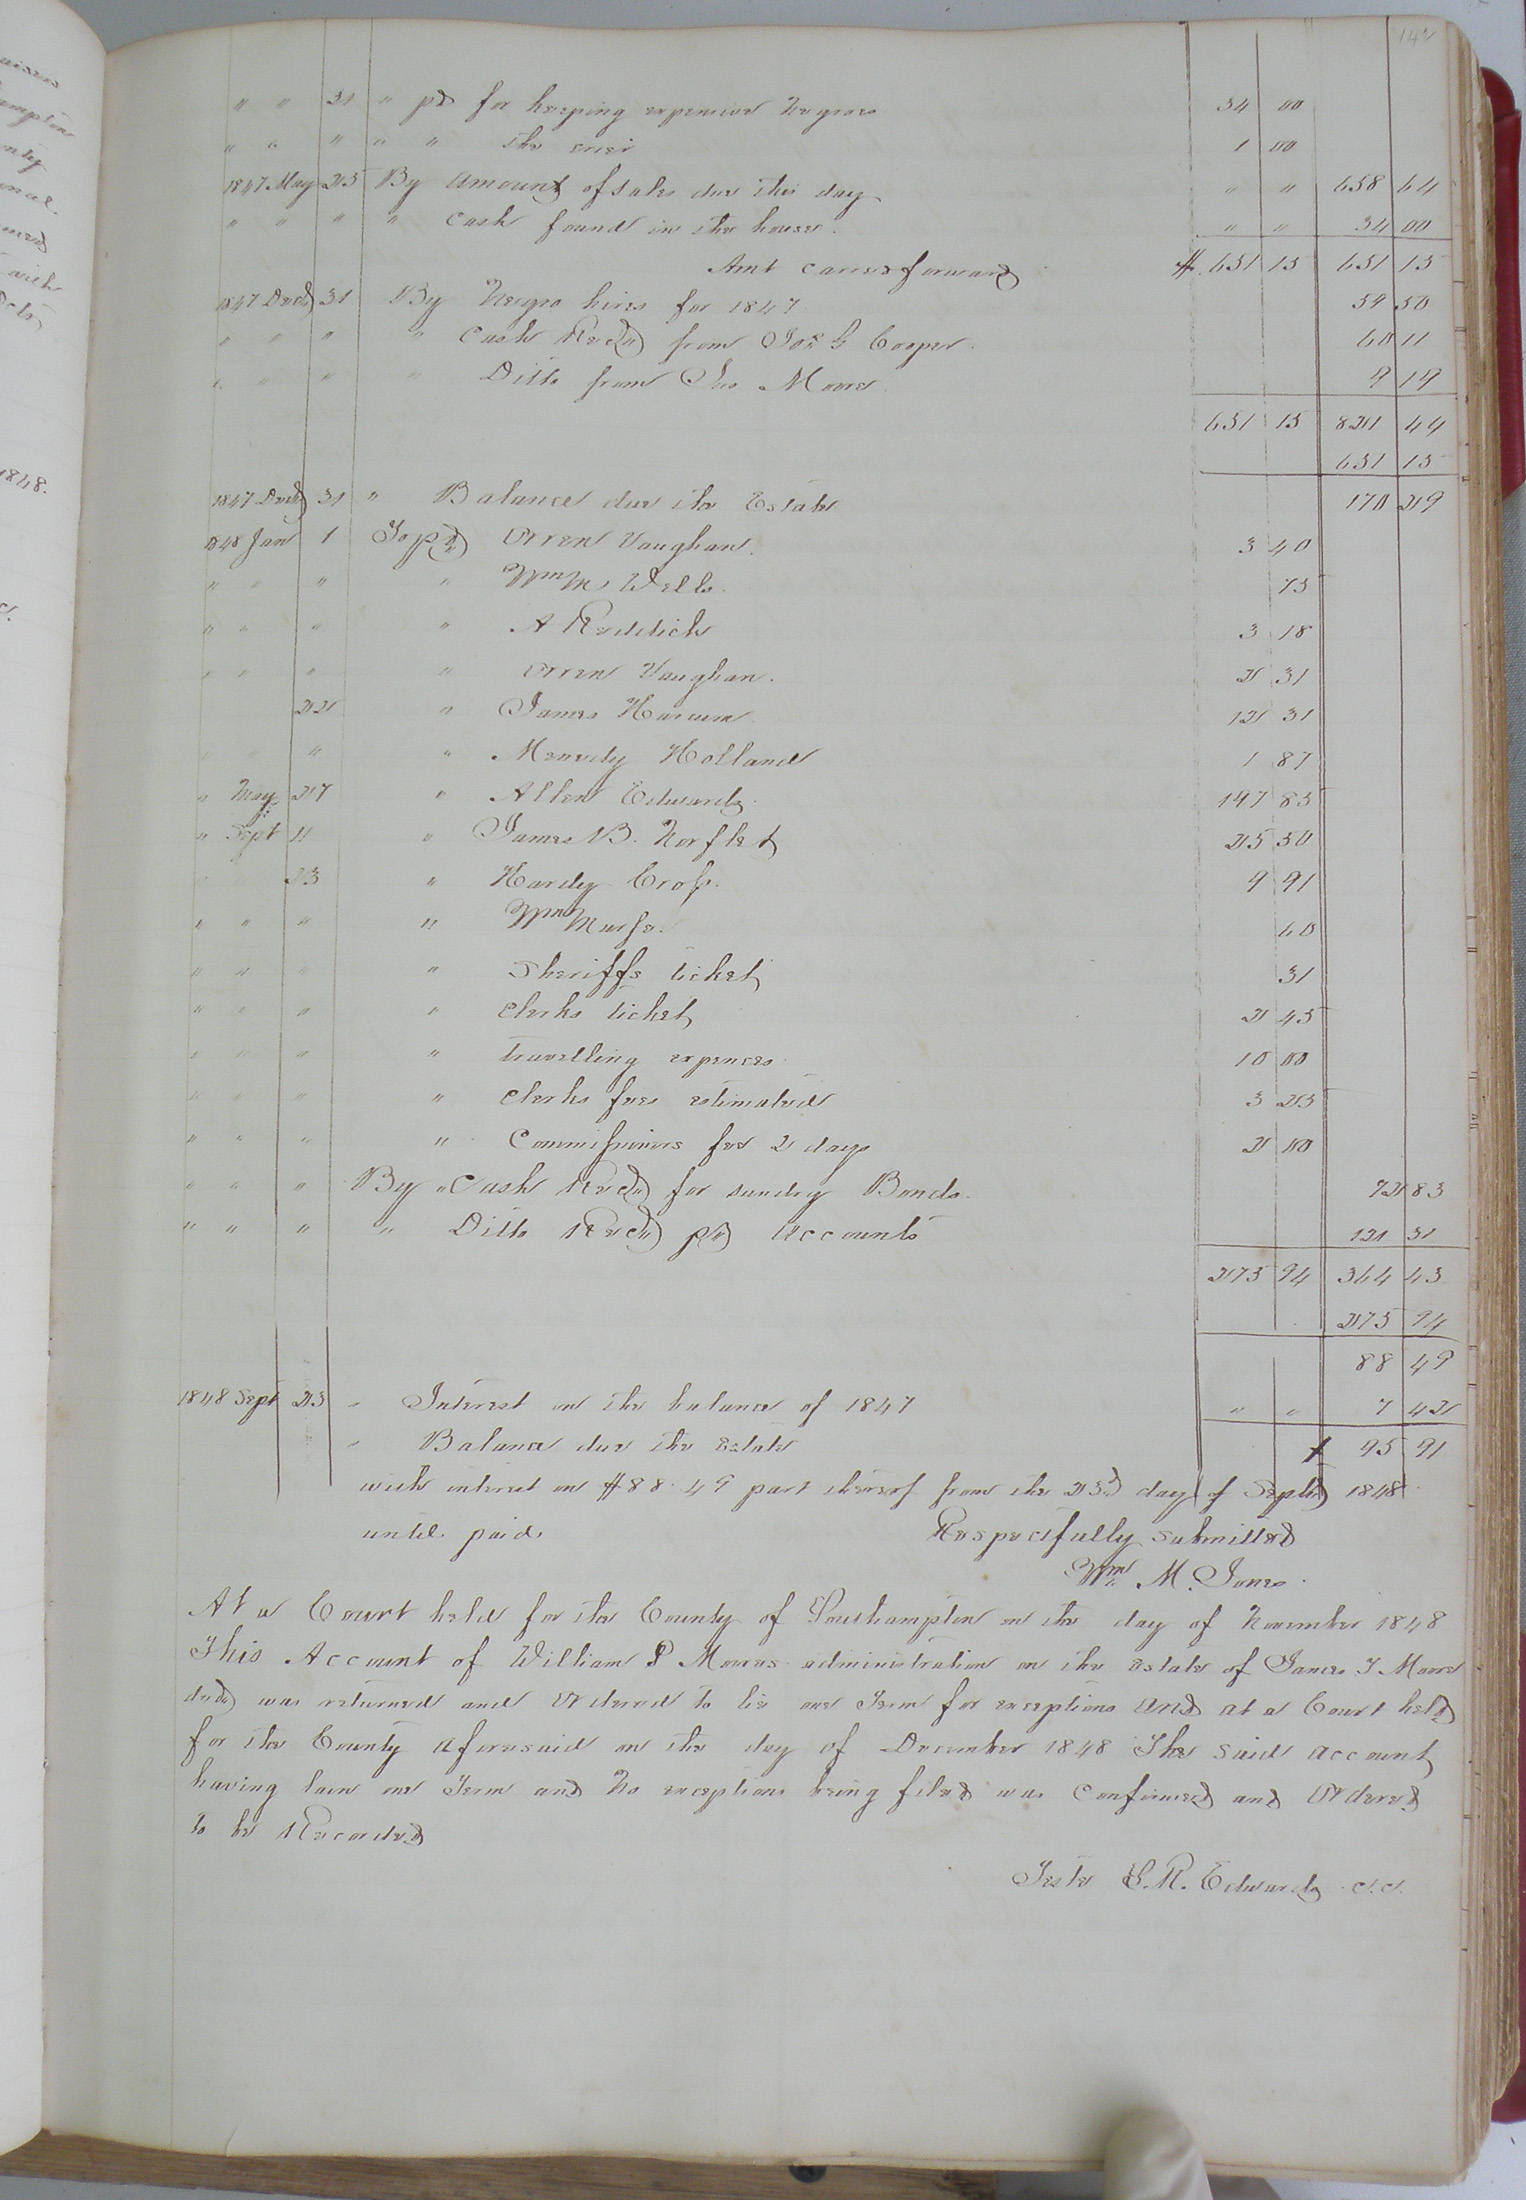 142
" " 31 " pd for keeping expensive Negroes 34 00
" " " " " the crier 1 00
1847 May 25 By Amount of sales due this day " " 658 64
" " " " Cash found in the house. " " 34 00
Amt carried forward $ 651 15 651 15
1847 Decr 31 By Negro hires for 1847 59 50
" " " " Cash Recd from Jos G Cooper. 60 11
" " " " Ditto from Jno Moore 9 19
651 15 821 44
651 15
1847 Decr 31 " Balance due the Estate 170 29
1848 Jan 1 To pd Orren Vaughan. 3 40
" " " " Wm M Wells. 75
" " " " A Reddick 3 18
" " " " Orren Vaughan. 2 31
22 " James Harum 12 31
" " " " Holland 1 87
" May 27 " Allen Edwards 147 83
" Sept 11 " James B. Norflet 25 50
23 " Hardy Cross. 9 91
" " " " Wm 60
" " " " Sheriffs ticket 31
" " " " Clerks ticket 2 45
" " " " travelling expences 10 00
" " " " Clerks fees estimated 3 25
" " " " Commissioners fee 2 days 2 00
" " " By " Cash Recd for sundry Bonds. 72 83
" " " " Ditto Recd pd Accounts 121 31
275 94 364 43
275 94
88 49
1848 Sept 23 " Interest on the balance of 1847 " " 7 42
" Balance due the Estate 95 91
with interest on $88.49 part thereof from the 23d day of Septr 1848
until paid. Respectfully submitted
Wm M. Jones.
At a Court held for the County of Southampton on the day of November 1848
This Account of William P Moores administration on the estate of James T Moore
decd was returned and Ordered to lie one Term for exceptions and at a Court held
for the County aforesaid on the day of December 1848 The said account
having lain one Term and No exceptions being filed was Confirmed and Ordered
to be Recorded
Teste L. R. Edwards c.c.
1848.